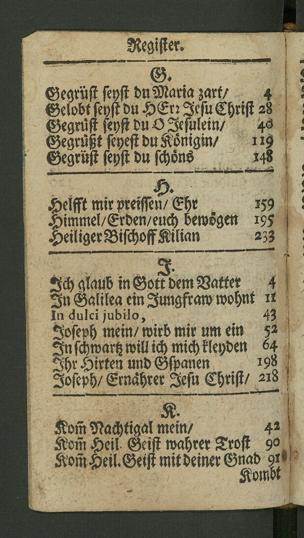 Register.
G.
Gegrüst seyst du Maria zart/ 4
Gelobt seyst du HErr Jesu Christ 28
Gegrüst seyst du O Jesulein/ 40
Gegrüßt seyest du Königin/ 119
Gegrüst seyst du schöns 148
H.
Helfft mir preissen/ Ehr 159
Himmel/Erden/euch bewögen 195
Heiliger Bischoff Kilian 233
J.
Ich glaub in Gott dem Vatter 4
In Galilea ein Jungfraw wohnt 11
In dulci jubilo, 43
Joseph mein/ wirb mir um ein 52
In schwartz will ich mich kleyden 64
Ihr Hirten und Gspanen 198
Joseph/ Ernährer Jesu Christ/ 218
K.
Kom̃ Nachtigal mein/ 42
Kom̃ Heil. Geist wahrer Trost 90
Kom̃ Heil. Geist mit deiner Gnad 91
Kombt